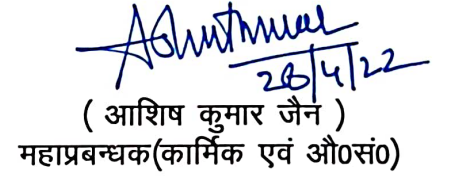 28/4/22
( आशिष कुमार जैन )
महाप्रबन्धक(कार्मिक एवं औ0सं0)